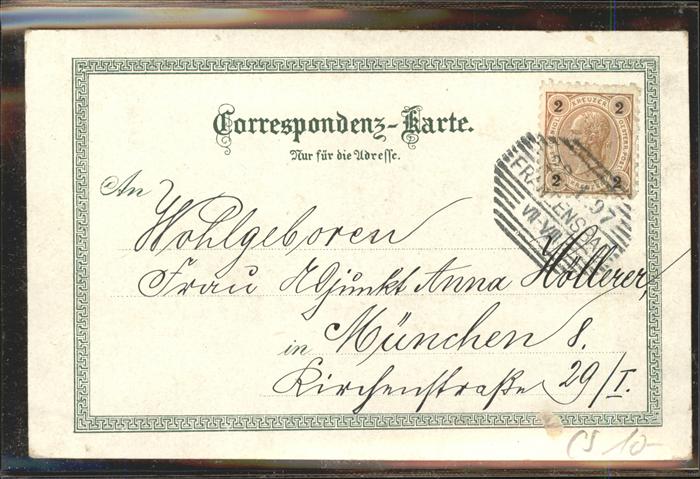 Correspondenz-Karte.
Nur für die Adresse.
2 KREUZER 2
2 2
97
FRANZENSBAD
An
Wohlgeboren
Frau Adjunkt Anna Höllerer,
in München 8.
Kirchenstraße 29/I.
CS 10-